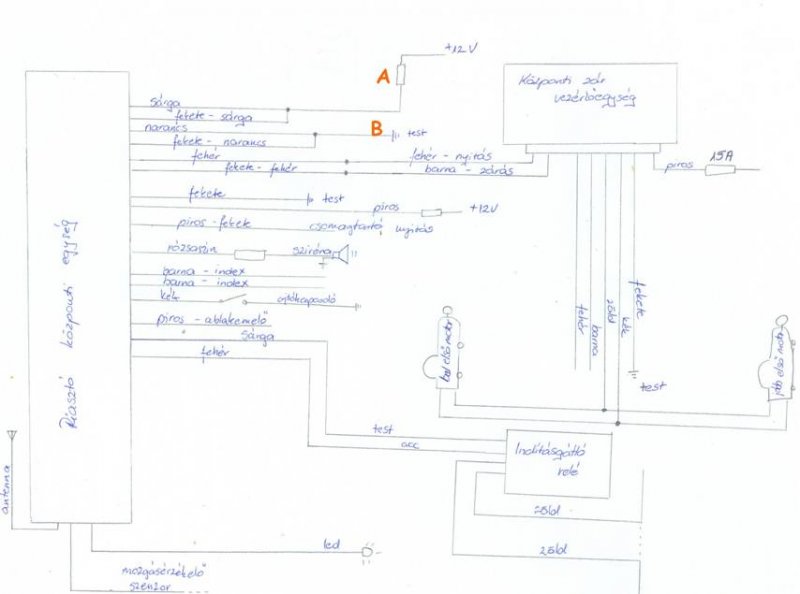 +12V
A
Központi zár
vezérlőegység
sárga
fekete - sárga
narancs
B
test
fekete - narancs
fehér
fehér - nyitás
fekete - fehér
barna - zárás
piros
15A
fekete
test
piros
+12V
piros - fekete
csomagtartó nyitás
rózsaszín
sziréna
barna - index
barna - index
kék
ajtókapcsoló
piros - ablakemelő
sárga
fehér
Riasztó központi egység
fehér
barna
zöld
kék
fekete
test
bal első motor
jobb első motor
test
acc
Indításgátló
relé
zöld
zöld
antenna
led
mozgásérzékelő
szenzor